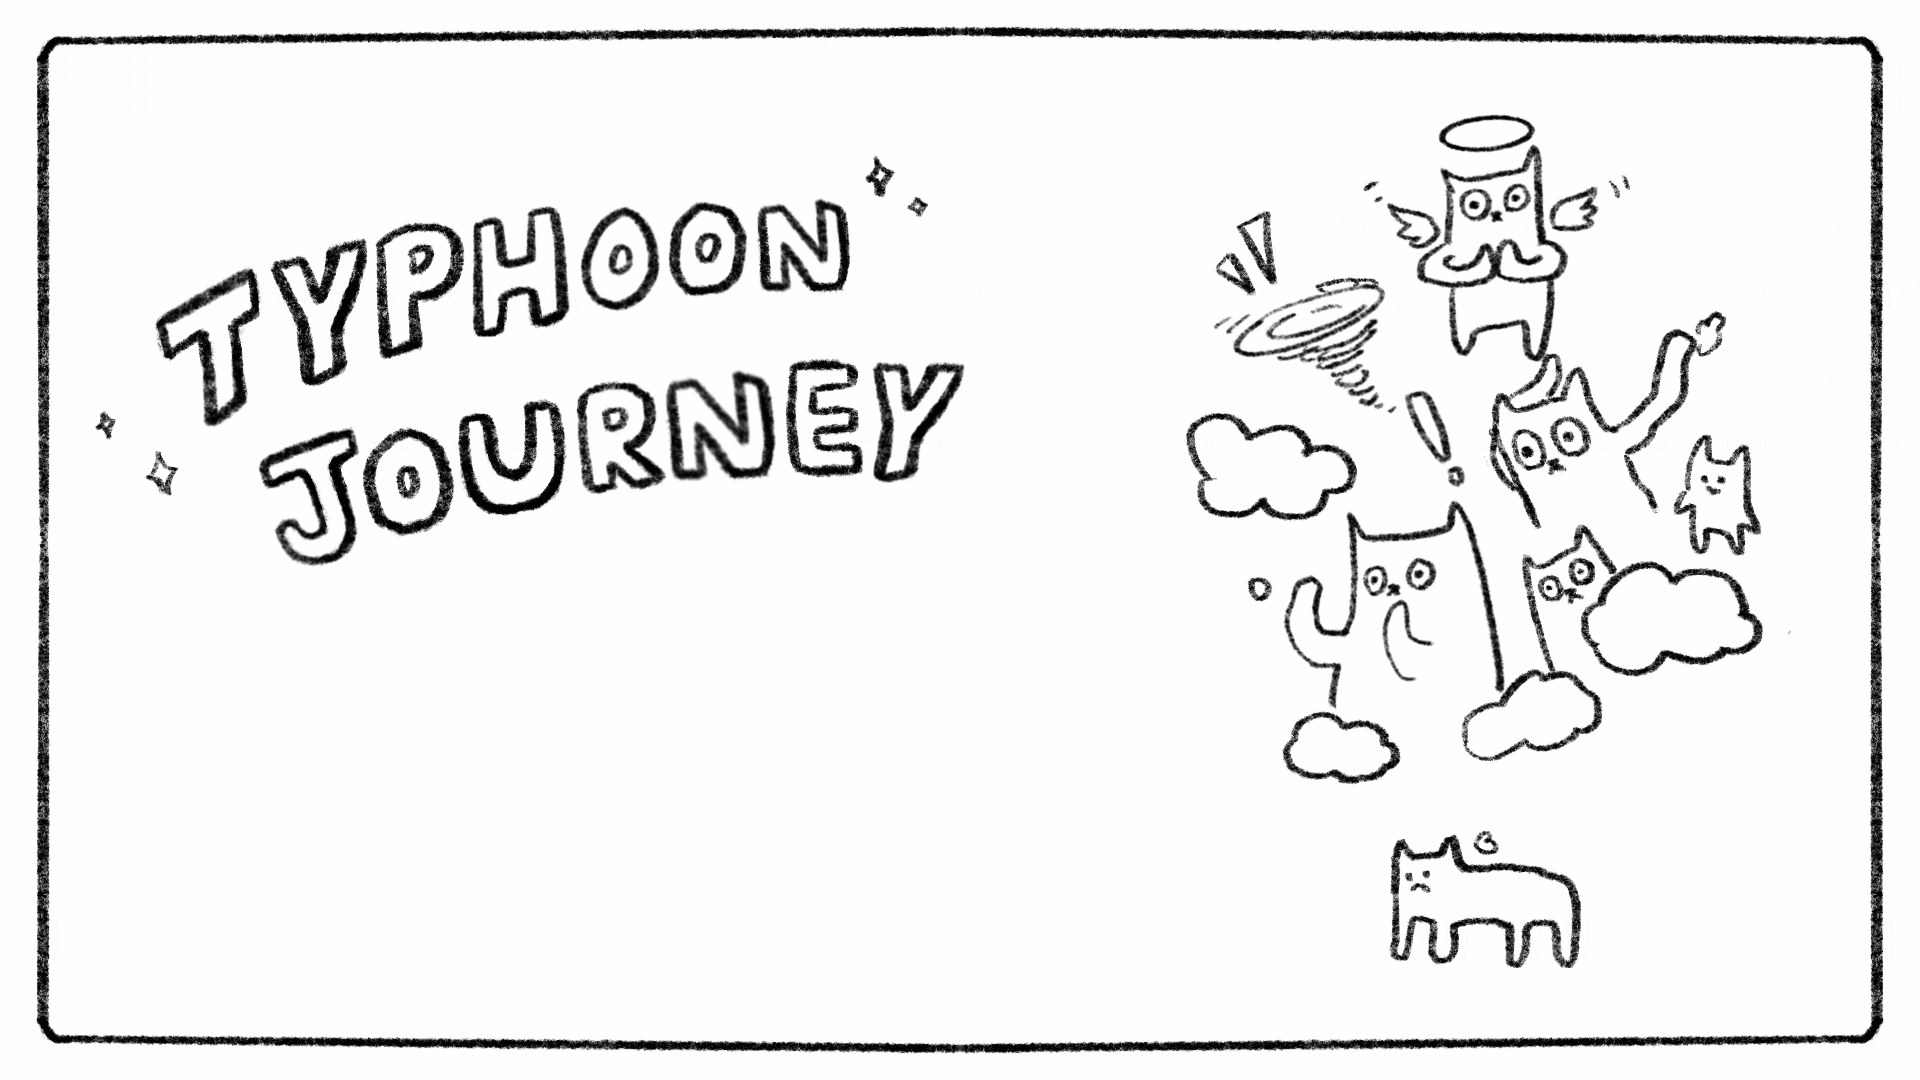 TYPHOON
JOURNEY